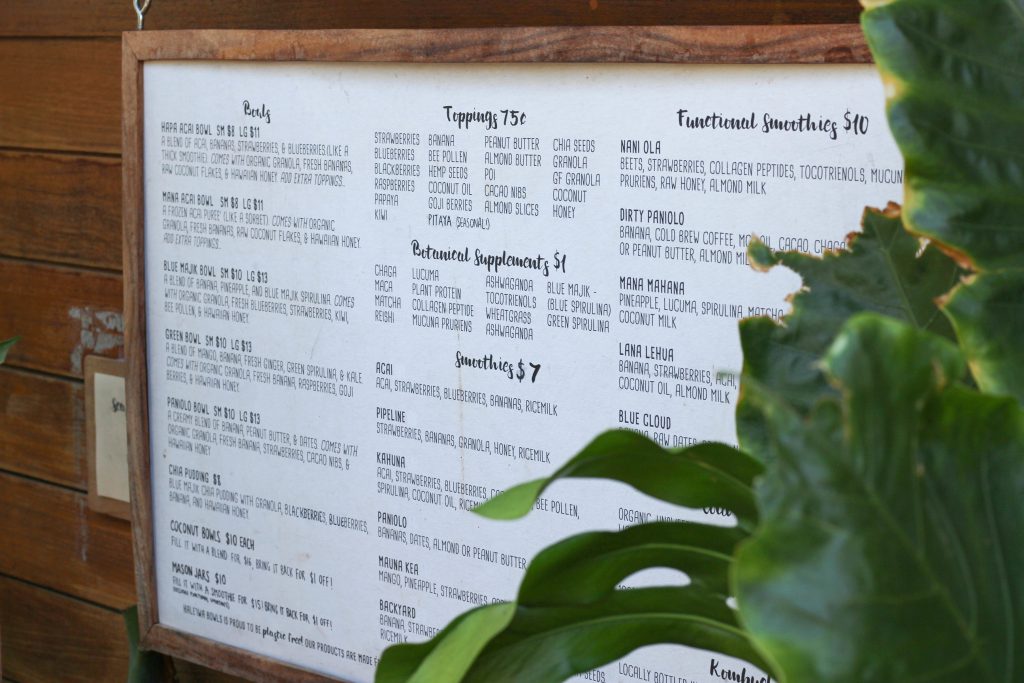 Bowls
HAPA ACAI BOWL SM $8 LG $11
A BLEND OF ACAI, BANANAS, STRAWBERRIES, & BLUEBERRIES.(LIKE A
THICK SMOOTHIE). COMES WITH ORGANIC GRANOLA, FRESH BANANAS,
RAW COCONUT FLAKES, & HAWAIIAN HONEY. ADD EXTRA TOPPINGS..
MANA ACAI BOWL SM $8 LG $11
A FROZEN ACAI PUREE (LIKE A SORBET) COMES WITH ORGANIC
GRANOLA, FRESH BANANAS, RAW COCONUT FLAKES, & HAWAIIAN HONEY.
ADD EXTRA TOPPINGS..
BLUE MAJIK BOWL SM $10 LG $13
A BLEND OF BANANA, PINEAPPLE, AND BLUE MAJIK SPIRULINA. COMES
WITH ORGANIC GRANOLA, FRESH BLUEBERRIES, STRAWBERRIES, KIWI,
BEE POLLEN, & HAWAIIAN HONEY.
GREEN BOWL SM $10 LG $13
A BLEND OF MANGO, BANANA, FRESH GINGER, GREEN SPIRULINA, & KALE
COMES WITH ORGANIC GRANOLA, FRESH BANANA, RASPBERRIES, GOJI
BERRIES, & HAWAIIAN HONEY.
PANIOLO BOWL SM $10 LG $13
A CREAMY BLEND OF BANANA, PEANUT BUTTER, & DATES. COMES WITH
ORGANIC GRANOLA, FRESH BANANA, STRAWBERRIES, CACAO NIBS, &
HAWAIIAN HONEY
CHIA PUDDING $8
BLUE MAJIK CHIA PUDDING WITH GRANOLA, BLACKBERRIES, BLUEBERRIES,
BANANA, AND HAWAIIAN HONEY.
COCONUT BOWLS $10 EACH
FILL IT WITH A BLEND FOR $16, BRING IT BACK FOR $1 OFF!
MASON JARS $10
FILL IT WITH A SMOOTHIE FOR $15! BRING IT BACK FOR $1 OFF!
HALEIWA BOWLS IS PROUD TO BE plastic free! OUR PRODUCTS ARE MADE
Toppings 75¢
STRAWBERRIES BANANA PEANUT BUTTER CHIA SEEDS
BLUEBERRIES BEE POLLEN ALMOND BUTTER GRANOLA
BLACKBERRIES HEMP SEEDS POI GF GRANOLA
RASPBERRIES COCONUT OIL CACAO NIBS COCONUT
PAPAYA GOJI BERRIES ALMOND SLICES HONEY
KIWI PITAYA (SEASONAL!)
Botanical Supplements $1
CHAGA LUCUMA ASHWAGANDA BLUE MAJIK -
MACA PLANT PROTEIN TOCOTRIENOLS (BLUE SPIRULINA)
MATCHA COLLAGEN PEPTIDE WHEATGRASS GREEN SPIRULINA
REISHI MUCUNA PRURIENS ASHWAGANDA
Smoothies $7
ACAI
ACAI, STRAWBERRIES, BLUEBERRIES, BANANAS, RICEMILK
PIPELINE
STRAWBERRIES, BANANAS, GRANOLA, HONEY, RICEMILK
KAHUNA
ACAI, STRAWBERRIES, BLUEBERRIES, BEE POLLEN,
SPIRULINA, COCONUT OIL,
PANIOLO
BANANAS, DATES, ALMOND OR PEANUT BUTTER
MAUNA KEA
MANGO, PINEAPPLE, STRAWBERRIES,
BACKYARD
BANANA,
RICEMILK
Functional Smoothies $10
NANI OLA
BEETS, STRAWBERRIES, COLLAGEN PEPTIDES, TOCOTRIENOLS,
PRURIENS, RAW HONEY, ALMOND MILK
DIRTY PANIOLO
BANANA, COLD BREW COFFEE, OIL, CACAO,
OR PEANUT BUTTER, ALMOND
MANA MAHANA
PINEAPPLE, LUCUMA, SPIRULINA, MATCHA
COCONUT MILK
LANA LEHUA
BANANA, STRAWBERRIES, ACAI,
COCONUT OIL, ALMOND MILK
BLUE CLOUD
BANANA, RAW DATES,
ORGANIC,
LOCALLY